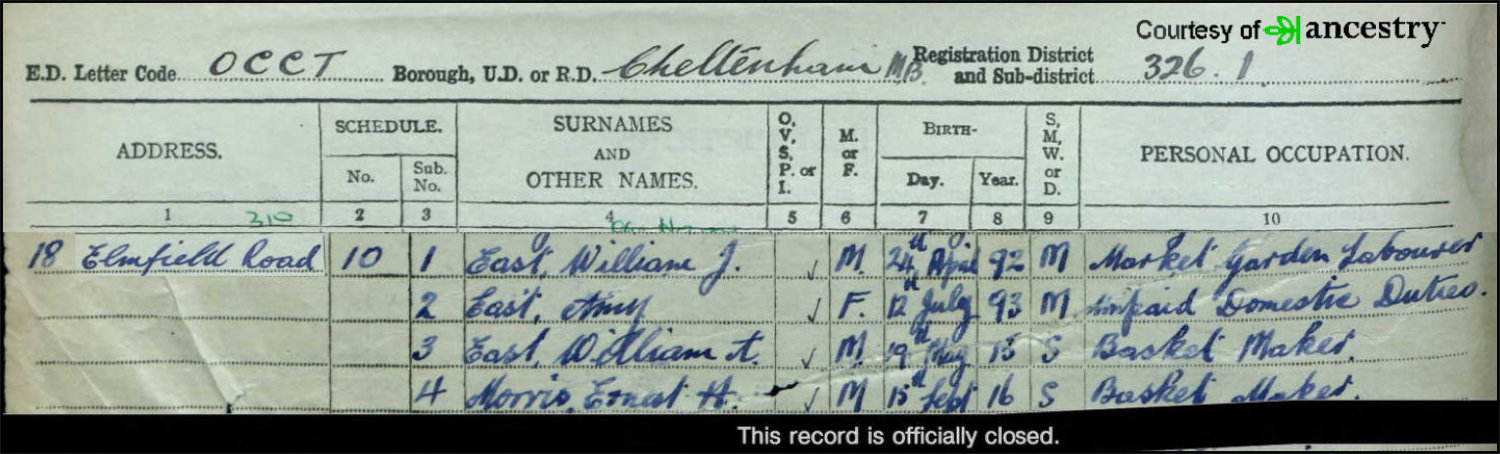 Courtesy of ancestry
E.D. Letter Code OCCT Borough, U.D. or R.D. Cheltenham M.B. Registration District and Sub-district 326.1
ADDRESS. SCHEDULE. No. Sub. No. SURNAMES AND OTHER NAMES. O, V, S, P. or I. M. or F. BIRTH- Day. Year. S, M, W. or D. PERSONAL OCCUPATION.
1 310 2 3 4 5 6 7 8 9 10
18 Elmfield Road 10 1 East, William J. ✓ M. 24th April 92 M Market Garden Labourer
2 East, Amy ✓ F. 12th July 93 M Unpaid Domestic Duties.
3 East, William A. ✓ M. 19th May 15 S Basket Maker.
4 Morris, Ernest H. ✓ M 15th Sept 16 S Basket Maker.
This record is officially closed.